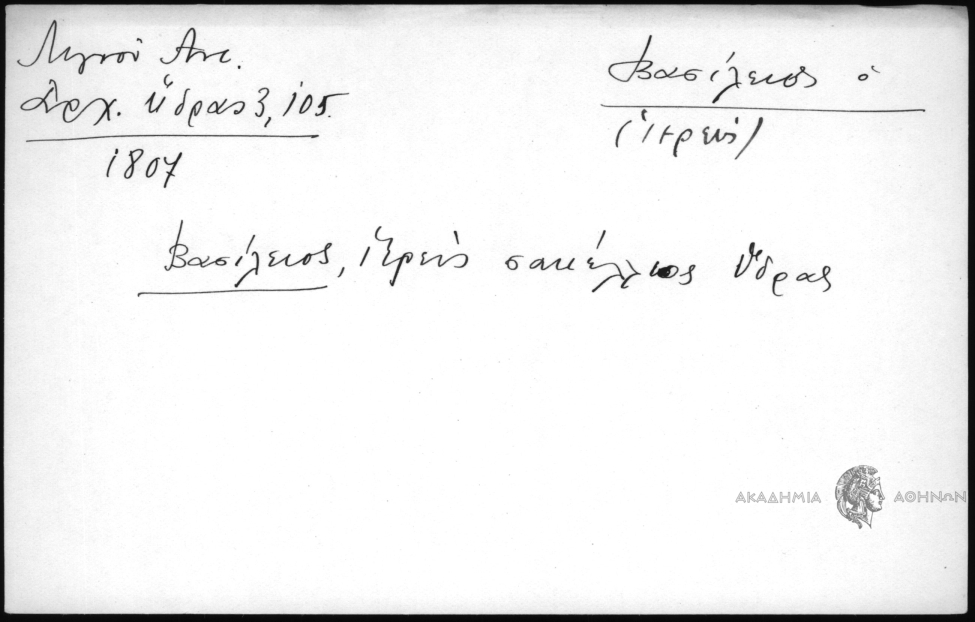 Λιγνού Αντ.
Ἀρχ. Ὕδρας 3, 105.
1807
Βασίλειος ὁ
(ἱερεὺς)
Βασίλειος, ἱερεὺς σακέλλιος Ὕδρας
ΑΚΑΔΗΜΙΑ ΑΘΗΝΩΝ